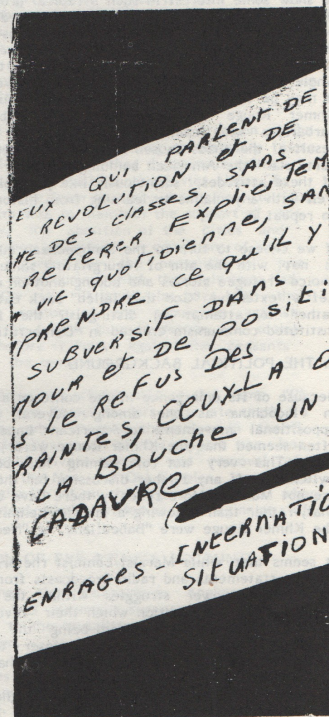 EUX QUI PARLENT DE
REVOLUTION et DE
TE DES classes, SANS
REFERER EXPLICITEM
VIE quotidienne, SAN
PRENDRE ce qu'il y
SUBVERSIF DANS
MOUR et DE positi
S le REFUS DES
RAINTES, CEUX LA O
LA BOUCHE UN
CADAVRE
ENRAGES - INTERNATIO
SITUATION